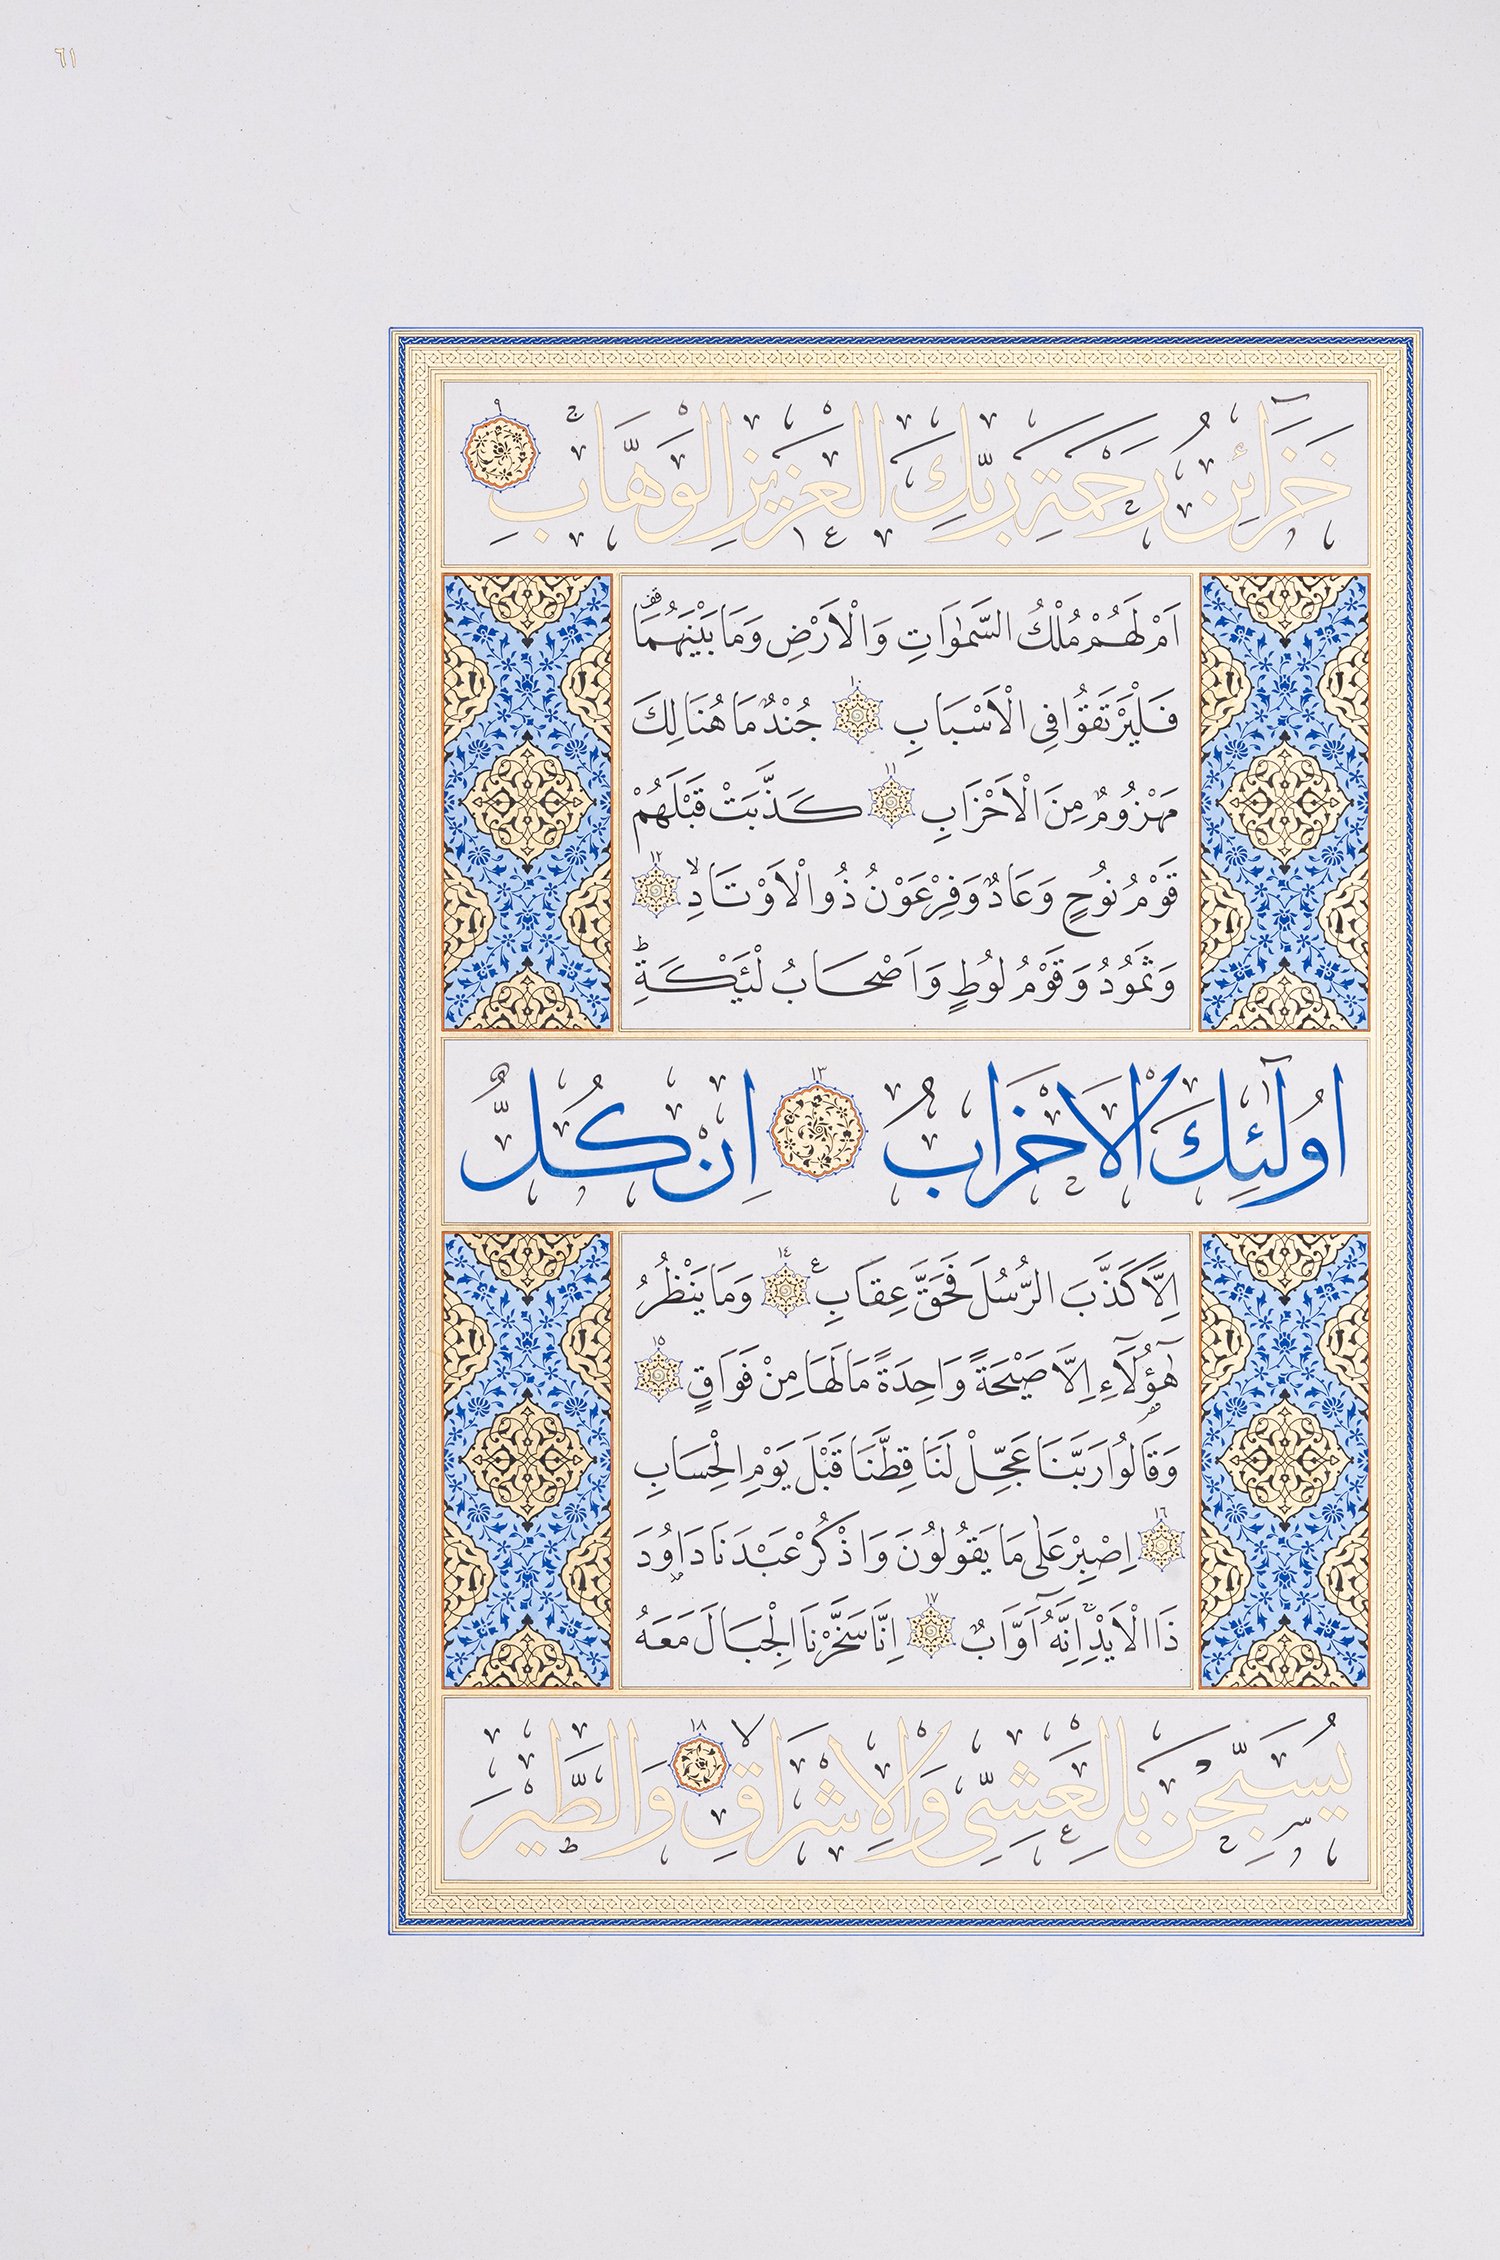 ٦١
خَزَٓائِنُ رَحْمَةِ رَبِّكَ الْعَز۪يزِ الْوَهَّابِۚ ٩
اَمْ لَهُمْ مُلْكُ السَّمٰوَاتِ وَالْاَرْضِ وَمَا بَيْنَهُمَا۠
فَلْيَرْتَقُوا فِي الْاَسْبَابِ ١٠ جُنْدٌ مَا هُنَالِكَ
مَهْزُومٌ مِنَ الْاَحْزَابِ ١١ كَذَّبَتْ قَبْلَهُمْ
قَوْمُ نُوحٍ وَعَادٌ وَفِرْعَوْنُ ذُوالْاَوْتَادِۙ ١٢
وَثَمُودُ وَقَوْمُ لُوطٍ وَاَصْحَابُ لْـَٔيْكَةِۜ
اُو۬لٰٓئِكَ الْاَحْزَابُ ١٣ اِنْ كُلٌّ
اِلَّا كَذَّبَ الرُّسُلَ فَحَقَّ عِقَابِ۟ ١٤ وَمَا يَنْظُرُ
هٰٓؤُ۬لَٓاءِ اِلَّا صَيْحَةً وَاحِدَةً مَا لَهَا مِنْ فَوَاقٍ ١٥
وَقَالُوا رَبَّنَا عَجِّلْ لَنَا قِطَّنَا قَبْلَ يَوْمِ الْحِسَابِ
١٦ اِصْبِرْ عَلٰى مَا يَقُولُونَ وَاذْكُرْ عَبْدَنَا دَاوُ۫دَ
ذَا الْاَيْدِۚ اِنَّهُٓ اَوَّابٌ ١٧ اِنَّا سَخَّرْنَا الْجِبَالَ مَعَهُ
يُسَبِّحْنَ بِالْعَشِيِّ وَالْاِشْرَاقِۙ ١٨ وَالطَّيْرَ